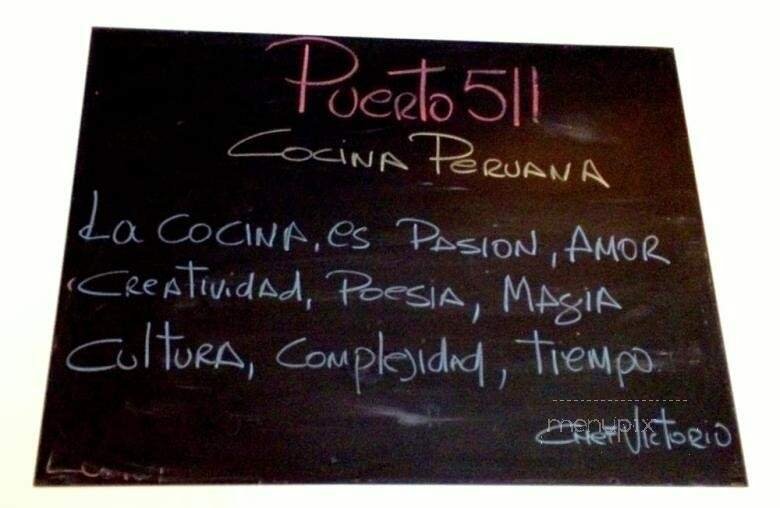 Puerto 511
COCINA PERUANA
La COCINA, es PASION, AMOR
CREATIVIDAD, POESIA, MAGIA
CULTURA, COMPLEJIDAD, TIEMPO
menupix
CHEF VICTORIO